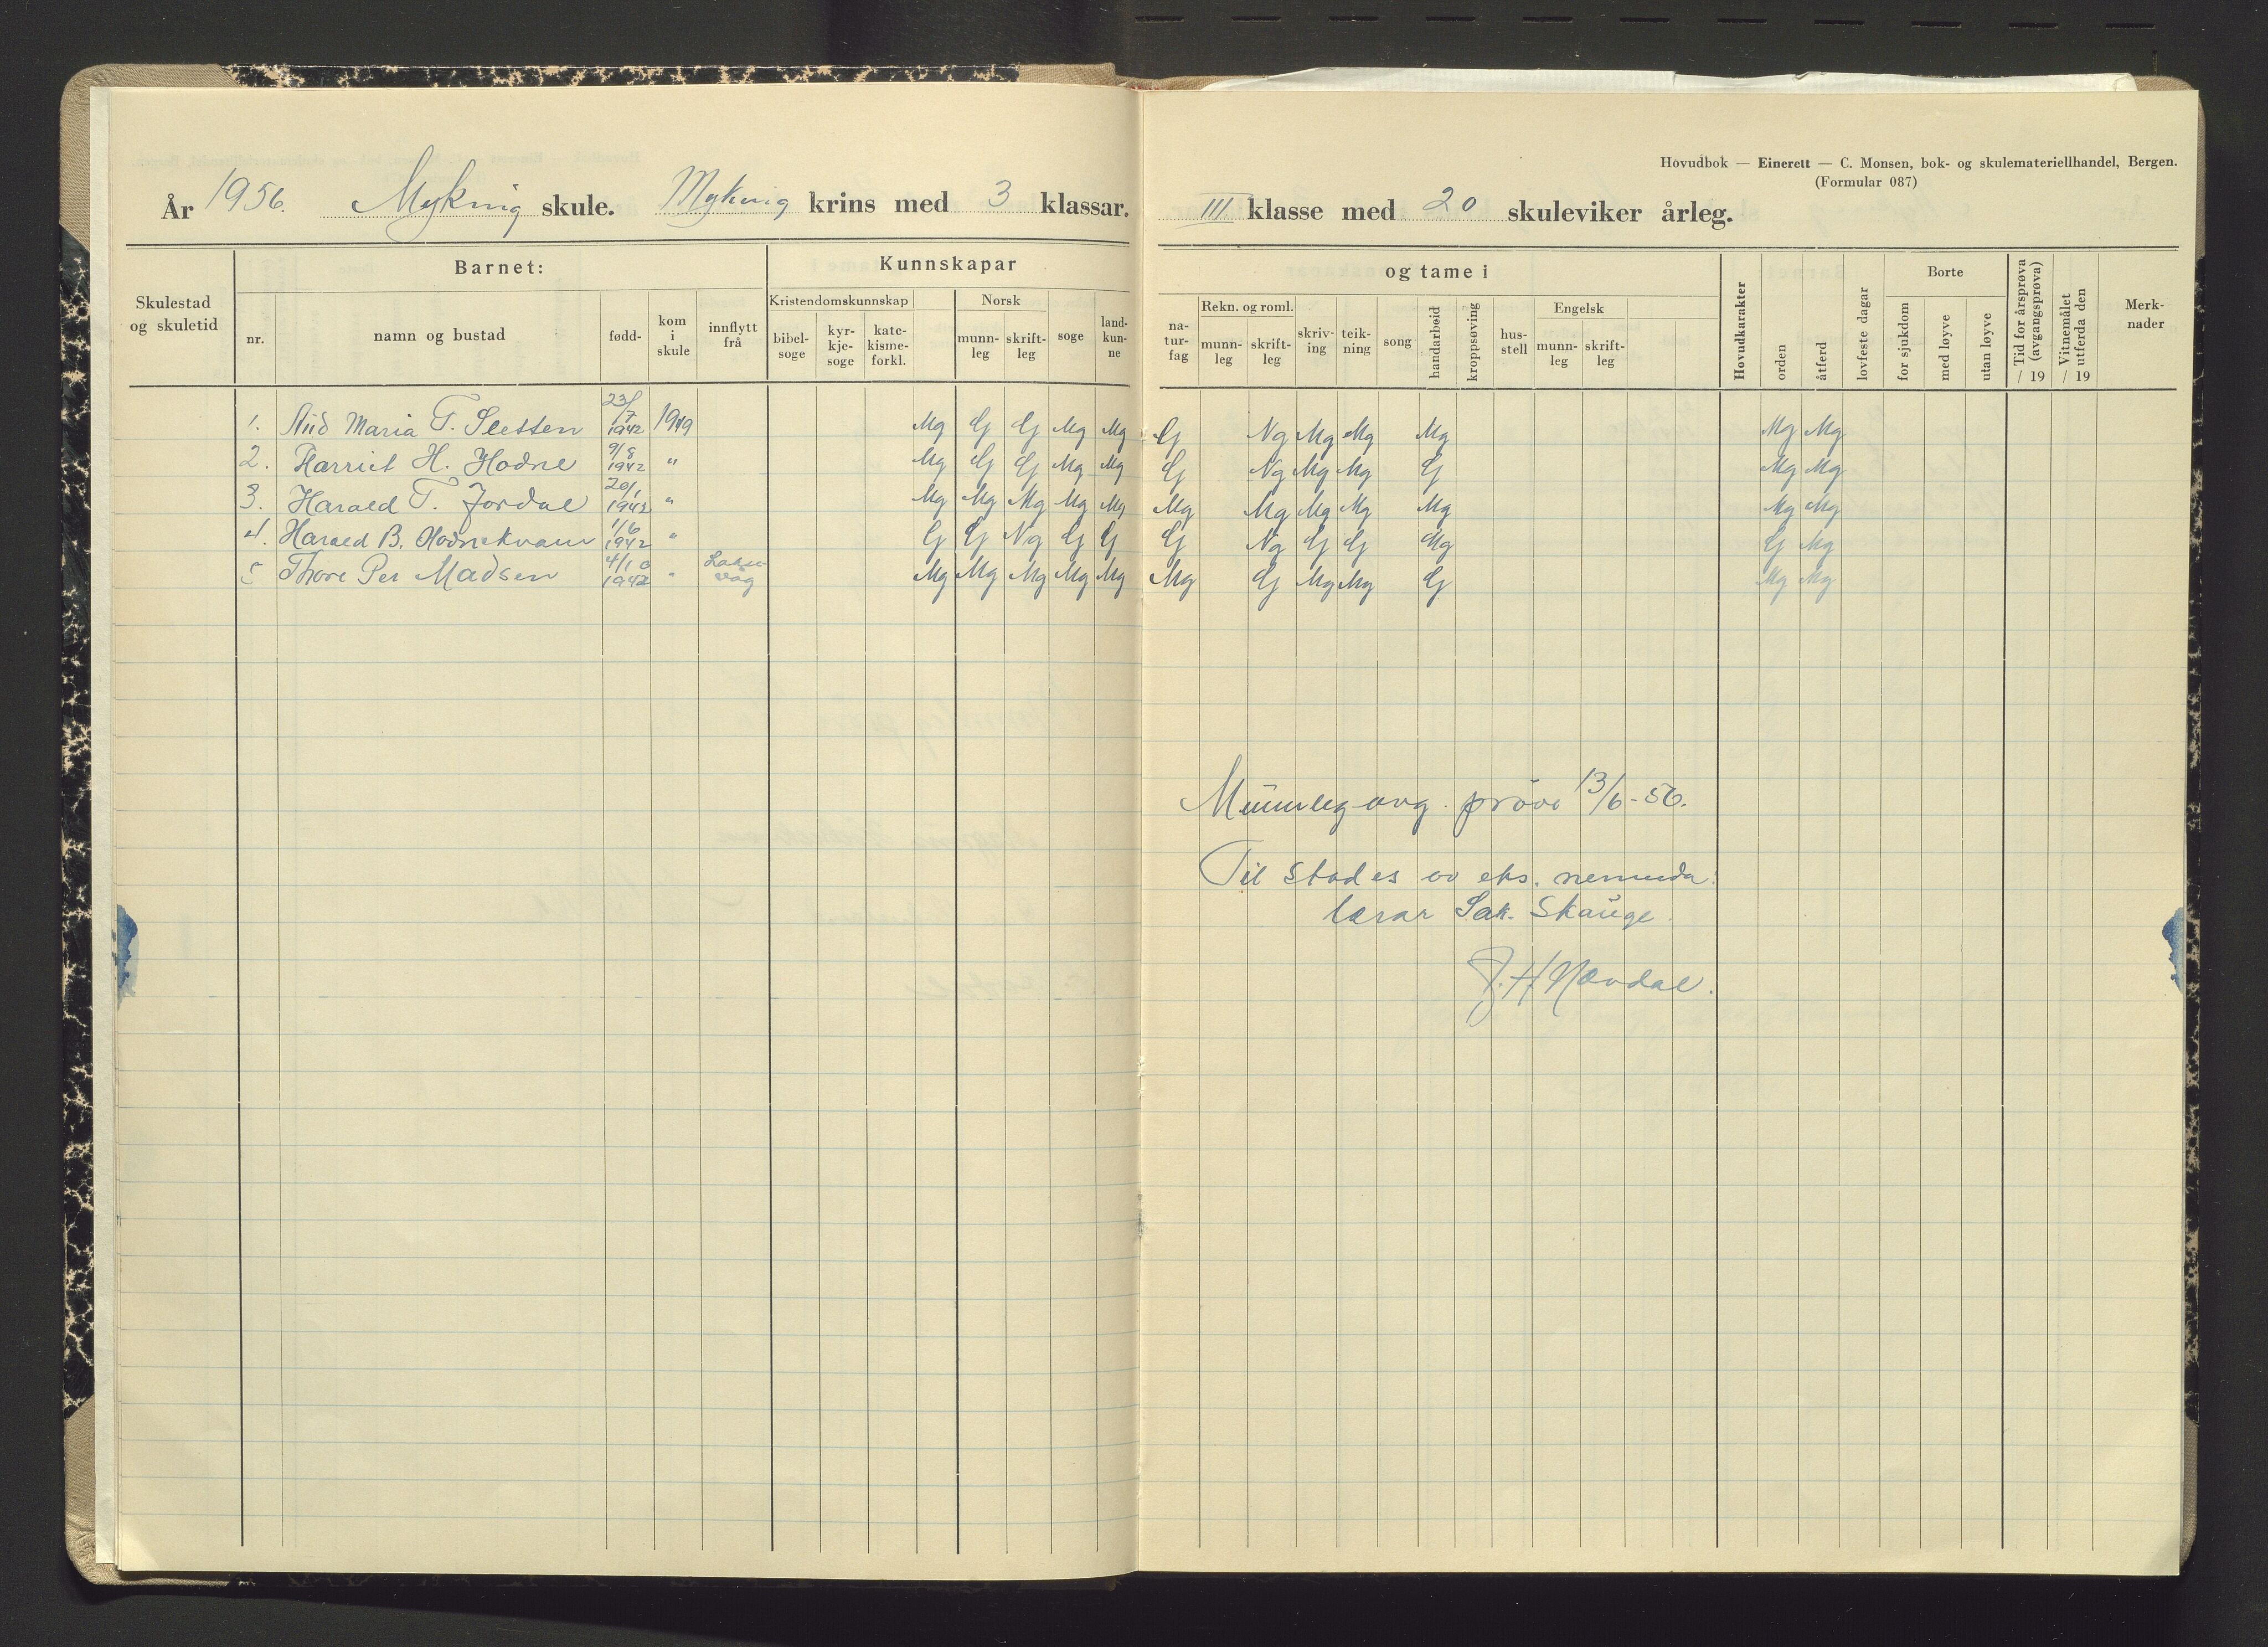 Hovudbok — Einerett — C. Monsen, bok- og skulemateriellhandel, Bergen.
(Formular 087)
År 1956. Myking skule. Myking krins med 3 klassar. III klasse med 20 skuleviker årleg.
Skulestad og skuletid
Barnet:
nr.
namn og bustad
fødd-
kom i skule
innflytt frå
Kunnskapar
Kristendomskunnskap
bibel-soge
kyr-kje-soge
kate-kisme-forkl.
Norsk
munn-leg
skrift-leg
soge
land-kun-ne
og tame i
na-tur-fag
Rekn. og roml.
munn-leg
skrift-leg
skriv-ing
teik-ning
song
handarbeid
kroppsøving
hus-stell
Engelsk
munn-leg
skrift-leg
Hovudkarakter
orden
åtferd
lovfeste dagar
Borte
for sjukdom
med løyve
utan løyve
Tid for årsprøva (avgangsprøva) / 19
Vitnemålet utferda den / 19
Merk-nader
1. Aud Maria T. Sletten 23/7 1942 1949 Mg G G Mg Mg G Ng Mg Mg Mg Mg Mg
2. Harriet H. Hodne 9/8 1942 " Mg G G Mg Mg G Ng Mg Mg G Mg Mg
3. Harald T. Jordal 20/1 1942 " Mg Mg Mg Mg Mg Mg Mg Mg Mg Mg Mg Mg
4. Harald B. Hodnekvam 1/6 1942 " G G Ng G G G Ng G G Mg G Mg
5 Thore Per Madsen 4/10 1942 " Laksevåg Mg Mg Mg Mg Mg Mg G Mg Mg G Mg Mg
Munnleg avg. prøve 13/6-56.
Til stades av eks. nemnda:
lærar Sak. Skauge.
J. H. Nævdal.